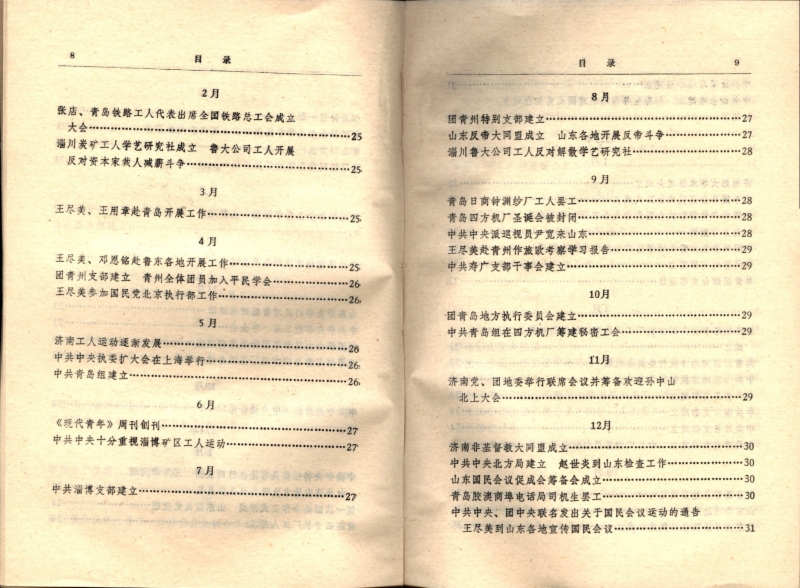 8
目 录
2月
张店、青岛铁路工人代表出席全国铁路总工会成立
大会……………………………………25
淄川炭矿工人学艺研究社成立 鲁大公司工人开展
反对资本家裁人减薪斗争……………………25
3月
王尽美、王用章赴青岛开展工作……………………25
4月
王尽美、邓恩铭赴鲁东各地开展工作…………………25
团青州支部建立 青州全体团员加入平民学会……………26
王尽美参加国民党北京执行部工作……………………26
5月
济南工人运动逐渐发展……………………………26
中共中央执委扩大会在上海举行……………………26
中共青岛组建立………………………………26
6月
《现代青年》周刊创刊……………………………27
中共中央十分重视淄博矿区工人运动…………………27
7月
中共淄博支部建立………………………………27
目 录
9
8月
团青州特别支部建立……………………………27
山东反帝大同盟成立 山东各地开展反帝斗争……………27
淄川鲁大公司工人反对解散学艺研究社………………28
9月
青岛日商铃渊纱厂工人罢工…………………………28
青岛四方机厂圣诞会被封闭…………………………28
中共中央派巡视员尹宽来山东………………………28
王尽美赴青州作旅欧考察学习报告……………………29
中共寿广支部干事会建立……………………………29
10月
团青岛地方执行委员会建立…………………………29
中共青岛组在四方机厂筹建秘密工会…………………29
11月
济南党、团地委举行联席会议并筹备欢迎孙中山
北上大会…………………………………29
12月
济南非基督教大同盟成立……………………………30
中共中央北方局建立 赵世炎到山东检查工作……………30
山东国民会议促成会筹备会成立………………………30
青岛胶澳商埠电话局司机生罢工………………………30
中共中央、团中央联名发出关于国民会议运动的通告
王尽美到山东各地宣传国民会议……………………31